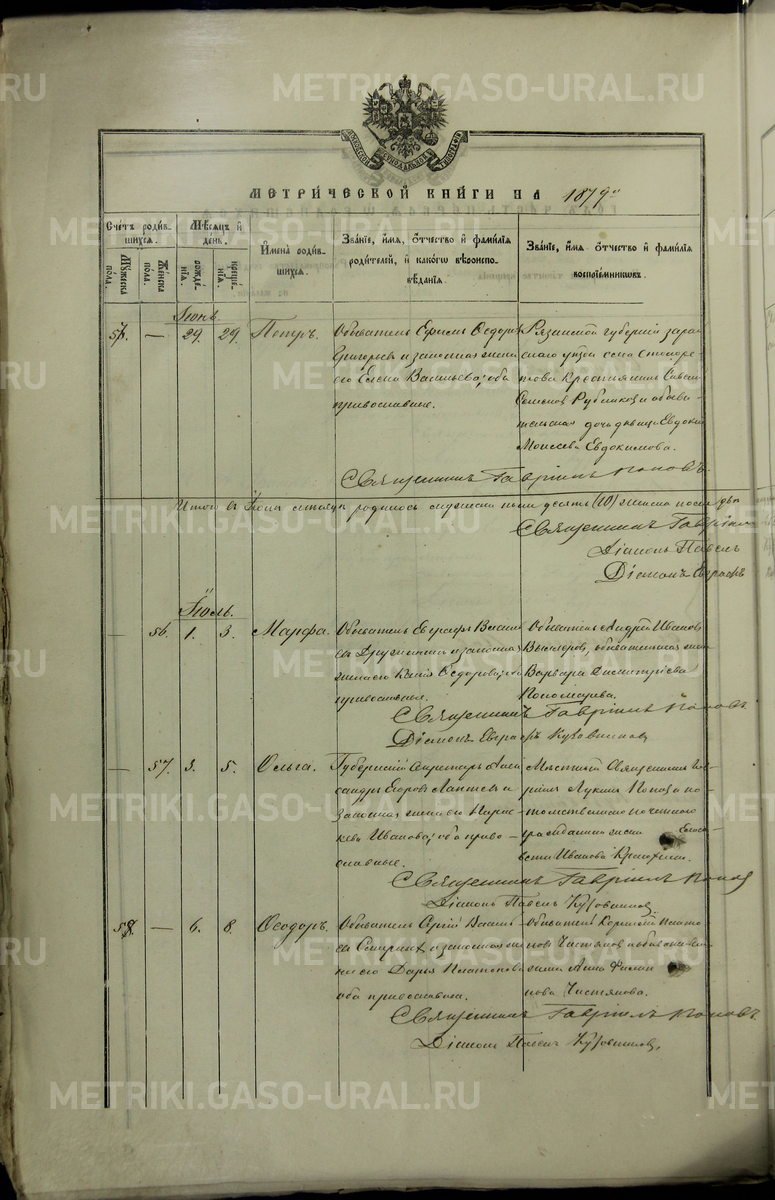 METRIKI.GASO-URAL.RU
МЕТРИ́ЧЕСКОЙ КНИ́ГИ НА 1879 го
Счётъ роди́в-
шихся.
Му́жеска
пола.
Же́нска
пола.
Мѣсяцъ и
де́нь.
рожде́-
нія.
креще́-
нія.
Имена̀ роди́в-
шихся.
Зва́ніе, и́мя, о́тчество и фами́лія
роди́телей, и како́гѡ вѣроиспо-
вѣ́данія.
Зва́ніе, и́мя о́тчество и фами́лія
воспріе́мникѡвъ.
Іюнь.
57. — 29. 29. Петръ.
Обыватель Ефимъ Ѳедоровъ
Григорьевъ и законная жена
его Елена Васильева; оба
православные.
Рязанской губерніи зарай-
скаго уѣзда села
крестьянинъ
Семеновъ и обыва-
тельская дочь дѣвица Евдокія
Моисеева Евдокимова.
Священникъ Гавріилъ Поповъ.
Итого въ Іюнѣ мѣсяцѣ родилось мужеска пола десять (10) женска пола два
Священникъ Гавріилъ
Діаконъ Павелъ
Діаконъ Евграфъ
Іюль.
— 56. 1. 3. Марфа.
Обыватель Евграфъ Василь-
евъ и законная
жена его Ѳедорова; оба
православные.
Обыватель Андрей Ивановъ
обывательская жена
Варвара Димитріева
Пономарева.
Священникъ Гавріилъ Поповъ.
Діаконъ Евграфъ Кузовниковъ
— 57. 3. 5. Ольга.
Губернскій Секретарь Алек-
сандръ Егоровъ Лаптевъ и
законная жена его Парас-
кева Иванова; оба право-
славные.
Мѣстный Священникъ Гав-
ріилъ Лукинъ Поповъ и по-
томственнаго почетнаго
гражданина жена Елиса-
вета Иванова
Священникъ Гавріилъ Поповъ
Діаконъ Павелъ Кузовниковъ
58. — 6. 8. Ѳеодоръ.
Обыватель Сергій Василь-
евъ и законная же-
на его Дарья Платонова
оба православные.
Обыватель Платоновъ
Чистяковъ и обывательская
жена Анна
Чистякова.
Священникъ Гавріилъ Поповъ.
Діаконъ Павелъ Кузовниковъ.